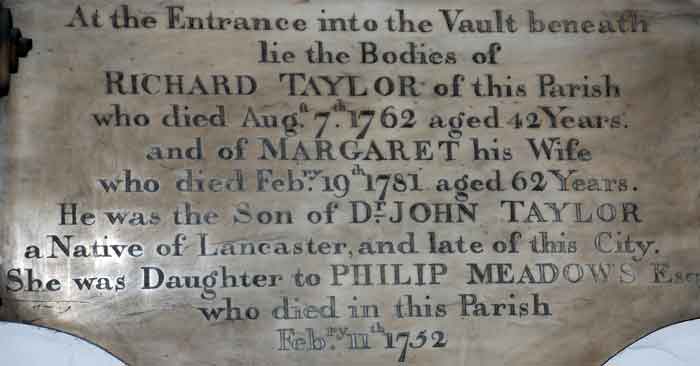 At the Entrance into the Vault beneath
lie the Bodies of
RICHARD TAYLOR of this Parish
who died Aug.ᵗ 7.ᵗʰ 1762 aged 42 Years.
and of MARGARET his Wife
who died Feb.ʳʸ 19ᵗʰ 1781 aged 62 Years.
He was the Son of Dʳ. JOHN TAYLOR
a Native of Lancaster, and late of this City.
She was Daughter to PHILIP MEADOWS Esqʳ
who died in this Parish
Feb.ʳʸ 11ᵗʰ 1752